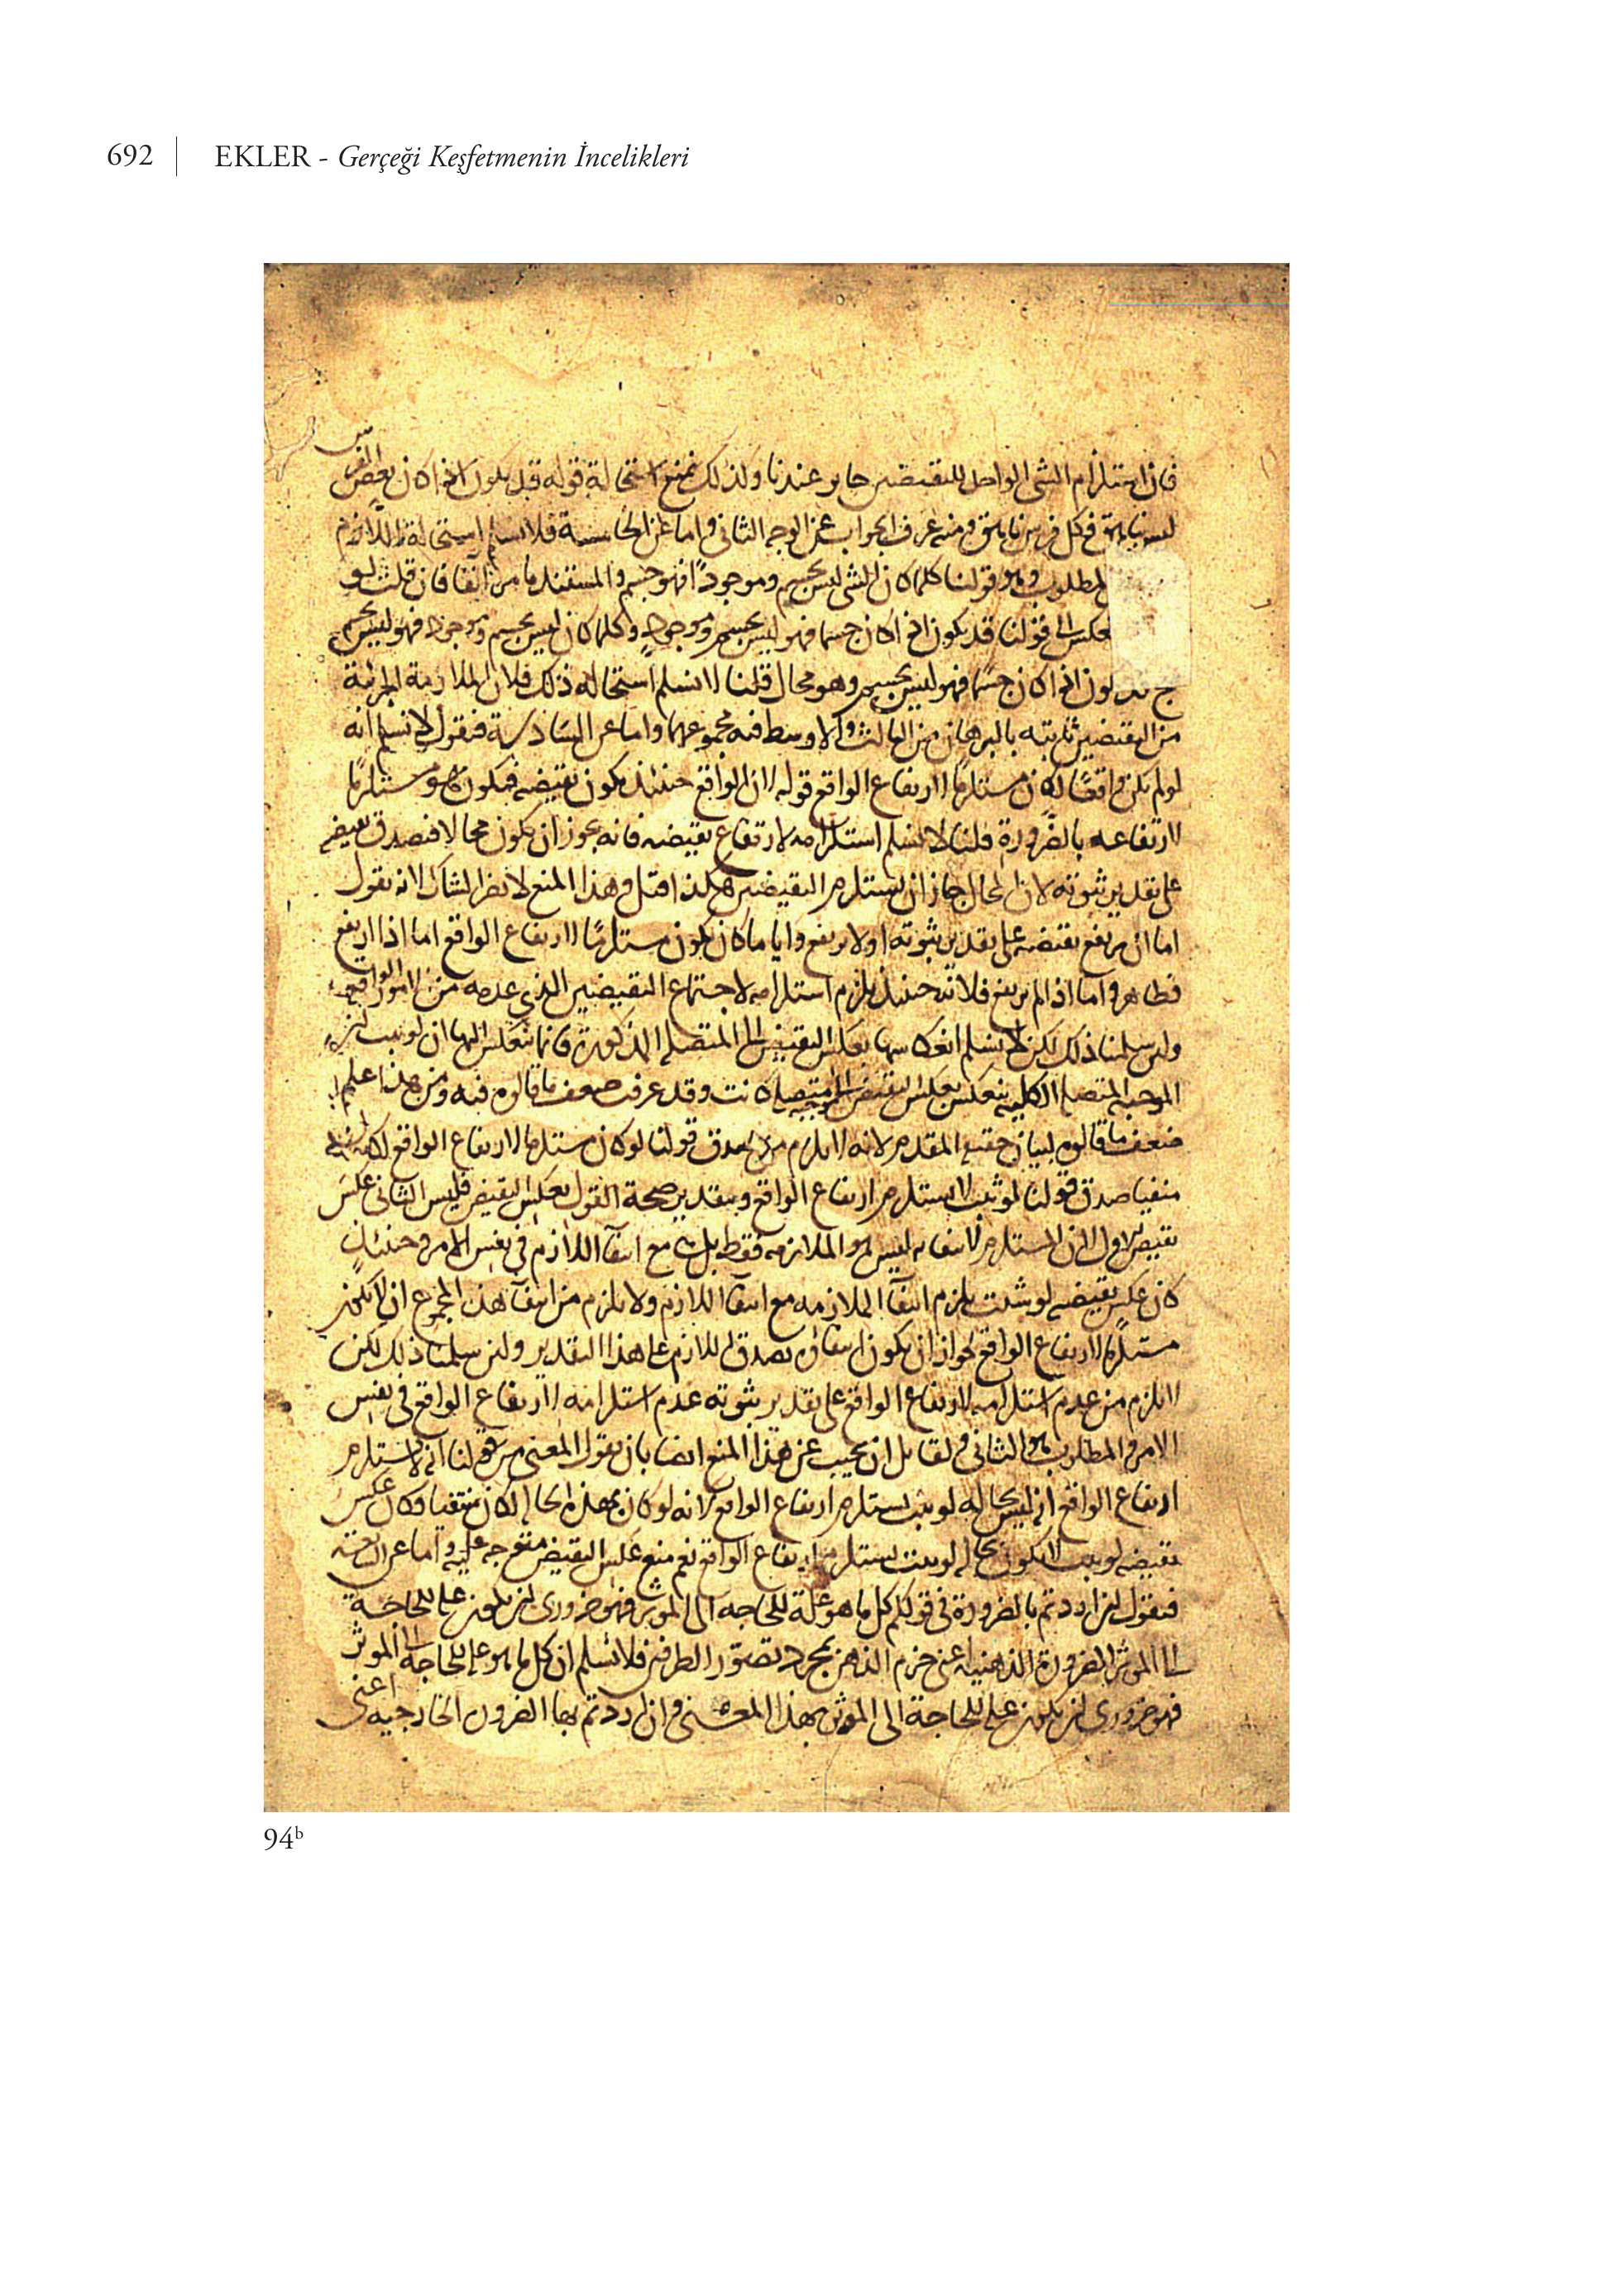 692 | EKLER - Gerçeği Keşfetmenin İncelikleri
فان استلزام الشى الواحد للنقيضين جايز عندنا ولذلك نمنع استحالة قوله قد يكون اذا كان بعض الفرس
ليس ناهق فكل فرس ناهق ومنه عرف الجواب عن الوجه الثانى واما عن الخامسة فلا نسلم استحالة اللازم
المطلوب وهو قولنا كلما كان الشى ليس بجسم وموجودًا فهو جسم والمستند ما مر آنفا فان قلت لو
انعكس الى قولنا قد يكون اذا كان جسما فهو ليس بجسم وموجود وكلما كان ليس بجسم وموجود فهو ليس بجسم
قد يكون اذا كان جسمًا فهو ليس بجسم وهو محال قلنا لا نسلم استحالة ذلك فلان الملازمة الجزئية
من النقيضين ثابتة بالبرهان من الثالث والاوسط فيه مجموعهما واما عن السادسة فنقول لا نسلم انه
لو لم يكن واقعًا لكان مستلزمًا لارتفاع الواقع قوله لان الواقع حينئذ يكون نقيضه فيكون هو مستلزمًا
لارتفاعه بالضرورة قلنا لا نسلم استلزامه لارتفاع نقيضه فانه يجوز ان يكون محالا فيصدق نقيضه
على تقدير ثبوته لان المحال جاز ان يستلزم النقيضين هكذا قيل وهذا المنع لا يضر المشكك لانه يقول
اما ان يرتفع نقيضه على تقدير ثبوته او لا يرتفع وايا ما كان يكون مستلزمًا لارتفاع الواقع اما اذا ارتفع
فظاهر واما اذا لم يرتفع فلانه حينئذ يلزم استلزامه لاجتماع النقيضين الذى عدمه من الامور الواقعة
ولئن سلمنا ذلك لكن لا نسلم انعكاسها بعكس النقيض الى المتصلة المذكورة فانما تنعكس اليها ان لو ثبت ان
الموجبة المتصلة الكلية تنعكس بعكس النقيض الى موجبة متصلة كانت وقد عرفت ضعف ما قالوه فيه ومن هذا اعلم
ضعف ما قالوه لبيان حقية المقدم لانه لا يلزم من صدق قولنا لو كان مستلزما لارتفاع الواقع لكان
منفيا صدق قولنا لو ثبت لا يستلزم ارتفاع الواقع وبتقدير صحة القول بعكس النقيض فليس الثانى عكس
نقيض الاول لان المستلزم لانتفائه ليس هو الملازمة فقط بل هى مع انتفآ اللازم فى نفس الامر وحينئذ
كان عكس نقيضه لو ثبت يلزم انتفآ الملازمة مع انتفآ اللازم ولا يلزم من انتفآ هذا المجموع ان لا يكون
مستلزمًا لارتفاع الواقع لجواز ان يكون انتفاؤه بصدق اللازم على هذا التقدير ولئن سلمنا ذلك لكن
لا يلزم من عدم استلزامه لارتفاع الواقع على تقدير ثبوته عدم استلزامه لارتفاع الواقع فى نفس
الامر والمطلوب هو الثانى ولقائل ان يجيب عن هذا المنع ايضا بان يقول المعنى من قولنا انه لا يستلزم
ارتفاع الواقع انه ليس بحالة لو ثبت يستلزم ارتفاع الواقع لانه لو كان بهذه الحالة لكان منتفيا وكان عكس
نقيضه لو ثبت لا يكون بحالة لو ثبت يستلزم ارتفاع الواقع نعم منع عكس النقيض متوجه عليه واما عن السابعة
فنقول ان اردتم بالضرورة فى قولكم كل ما هو علة للحاجة الى المؤثر فهو ضرورى ان يكون علة للحاجة
الى المؤثر الضرورة الذهنية اعنى جزم الذهن بمجرد تصور الطرفين فلا نسلم ان كل ما هو علة للحاجة الى المؤثر
فهو ضرورى ان يكون علة للحاجة الى المؤثر بهذا المعنى وان اردتم بها الضرورة الخارجية اعنى
94ᵇ